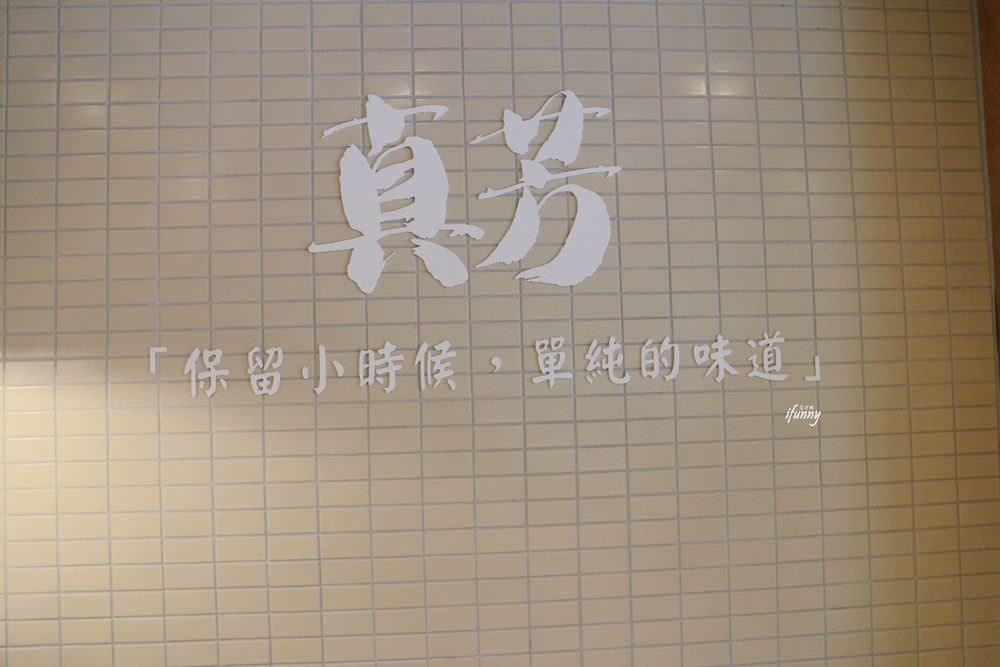 真芳
「保留小時候，單純的味道」
ifunny